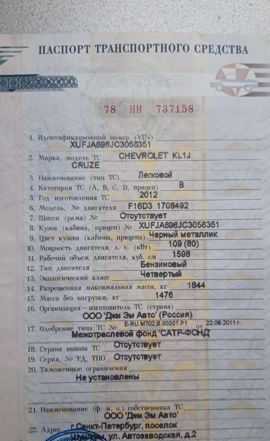 ПАСПОРТ ТРАНСПОРТНОГО СРЕДСТВА
78 НН 737158
1. Идентификационный номер (VIN) XUFJA696JC3056351
2. Марка, модель ТС CHEVROLET KL1J
CRUZE
3. Наименование (тип ТС) Легковой
4. Категория ТС (А, В, С, D, прицеп) B
5. Год изготовления ТС 2012
6. Модель, № двигателя F16D3 1708492
7. Шасси (рама) № Отсутствует
8. Кузов (кабина, прицеп) № XUFJA696JC3056351
9. Цвет кузова (кабины, прицепа) Черный металлик
10. Мощность двигателя, л. с. (кВт) 109 (80)
11. Рабочий объем двигателя, куб. см 1598
12. Тип двигателя Бензиновый
13. Экологический класс Четвертый
14. Разрешенная максимальная масса, кг 1844
15. Масса без нагрузки, кг 1476
16. Организация – изготовитель ТС (страна)
ООО "Джи Эм Авто" (Россия)
17. Одобрение типа ТС № E-RU.MT02.B.00007.P1 от 22.06.2011 г.
Межотраслевой фонд "САТР-ФОНД"
18. Страна вывоза ТС Отсутствует
19. Серия, № ТД, ТПО Отсутствует
20. Таможенные ограничения
Не установлены
21. Наименование (ф. и. о.) собственника ТС
ООО "Джи Эм Авто"
22. Адрес г.Санкт-Петербург, поселок
Шушары, ул. Автозаводская, д.2